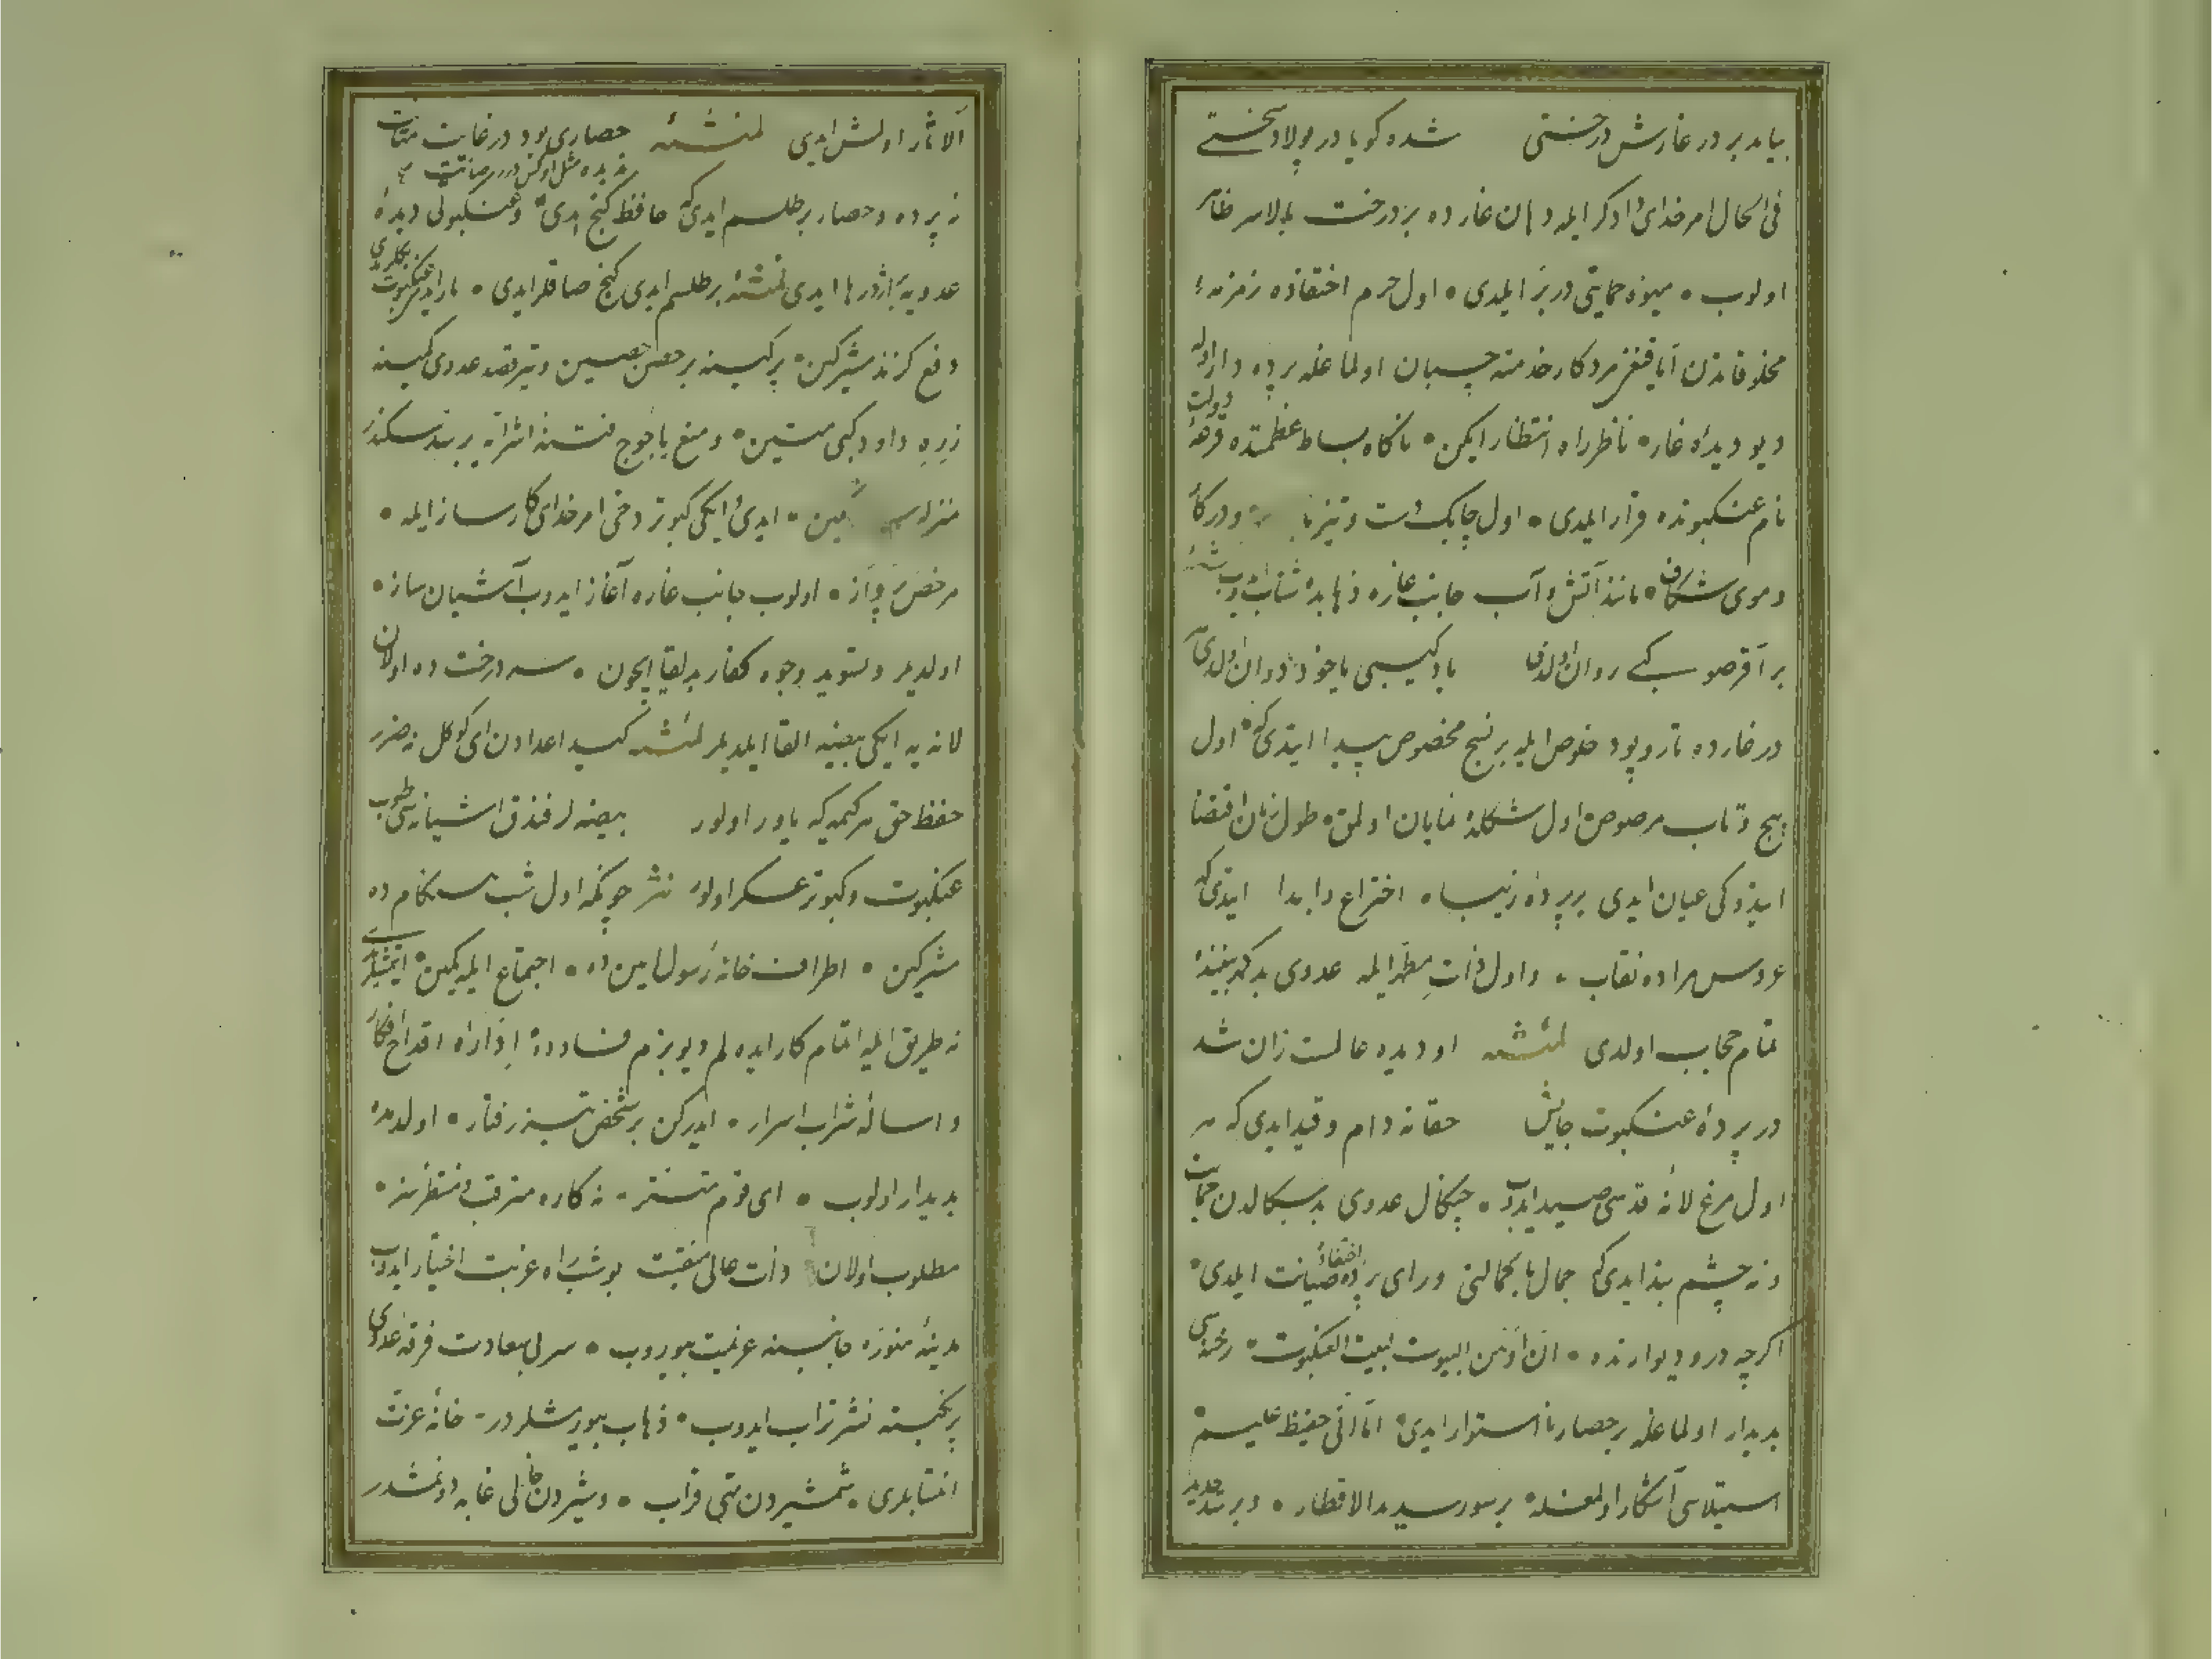 بیامد بر در غارش درختی شده کویا در پولاد سختی
فی الحال امر خدای دادکر ایله دهان غارده بر درخت بالا سر ظاهر
اولوب میوهٔ حمایتی در بر ایلدی اول حرم اختفاده زمزمهٔ
مخلوقاتدن آیا قنغی مرد کار خدمته چسبان اولماغله پرده دار اوله
دیو دیدهٔ غار ناظر راه انتظار ایکن ناکاه بساط عظمتده قرعهٔ دولت
نام عنکبوتده قرار ایلدی اول چابک دست و تیز
و موی شکاف مانند آتش و آب جانب غاره ذهابده شتاب ایدوب
بر آقر صو کبی روان اولدی باد کیبی یاخود دوان اولدی
در غارده تار و پود خلوص ایله بر نسج مخصوص پیدا ایتدی که اول
پیچ و تاب مرصوص اول شکلده نمایان اولمق طول زمان اقتضا
ایتدوکی عیان ایدی بر پردهٔ زیبا اختراع و ابدا ایتدی که
عروس مراده نقاب و اول ذات مطهر ایله عدوی بد کهر بیننده
تمام حجاب اولدی لمنشئه او دیده عالمست زان شد
در پردهٔ عنکبوت جایش حقا نه دام و قید ایدی که
اول مرغ لانهٔ قدسی صید ایدوب چنکال عدوی بد سکالدن
و نه چشم بند ایدی که جمال با کمالنی ورای پردهٔ اختفاده صیانت ایلدی
اکرچه در و دیوارنده ان اوهن البیوت لبیت العنکبوت رخنه سی
بدیدار اولماغله بر حصار نا استوار ایدی اما انی حفیظ علیم
استیلاسی آشکار اولمغله بر سور سدید الاقطار و بر سد حدید
الآثار اولمش ایدی لمنشئه حصاری بود در غایت متانت
ندیده مثل او کس در رصانت
نه پرده و حصار بر طلسم ایدی که حافظ کنج ایدی و عنکبوتی دیدهٔ
عدویه بر اژدرها ایدی لمنشئه بر طلسم ایدی کنج صاقلر ایدی مار ایدی عنکبوت
دفع کزند مشرکین پر کینه بر حصن حصین و تیر قصد عدوی کمینه
زره داود کبی متین و منع یاجوج فتنهٔ اشراره بر سد سکندر
منزله سی ایدی ایکی کبوتر دخی امر خدای کارساز ایله
مرخص پرواز اولوب جانب غاره آغاز ایدوب آشیان ساز
اولدیلر و تسوید وجوه کفار بد لقا ایچون سر درخت ده اولان
لانه یه ایکی بیضه القا ایلدیلر لمنشئه کید اعدادن ای کوکل نه ضرر
حفظ حق هر کیمه که یاور اولور بیضه لر فندق آشیانه سی طوپ
عنکبوت و کبوتر عسکر اولور نثر چونکه اول شب هنکام ده
مشرکین اطراف خانهٔ رسول امین ده اجتماع ایله کمین ایتمشلر
نه طریق ایله اتمام کار ایده لم دیو بزم فسادده اداره اقداح افکار
و اسالهٔ شراب اسرار ایدرکن بر شخص تیز رفتار اولدمده
بدیدار اولوب ای قوم متستر نه کاره مترقب و منتظرسز
مطلوب اولان ذات عالی منقبت بو شب راه غربت اختیار ایدوب
مدینهٔ منوره جانبنه عزیمت بیوروب سر بی سعادت فرقهٔ عدوی
پر کینه نثر تراب ایدوب ذهاب بیورمشلردر خانهٔ عزت
انتسابلری شمشیردن تهی قراب و شیردن خالی غابه دونمشدر